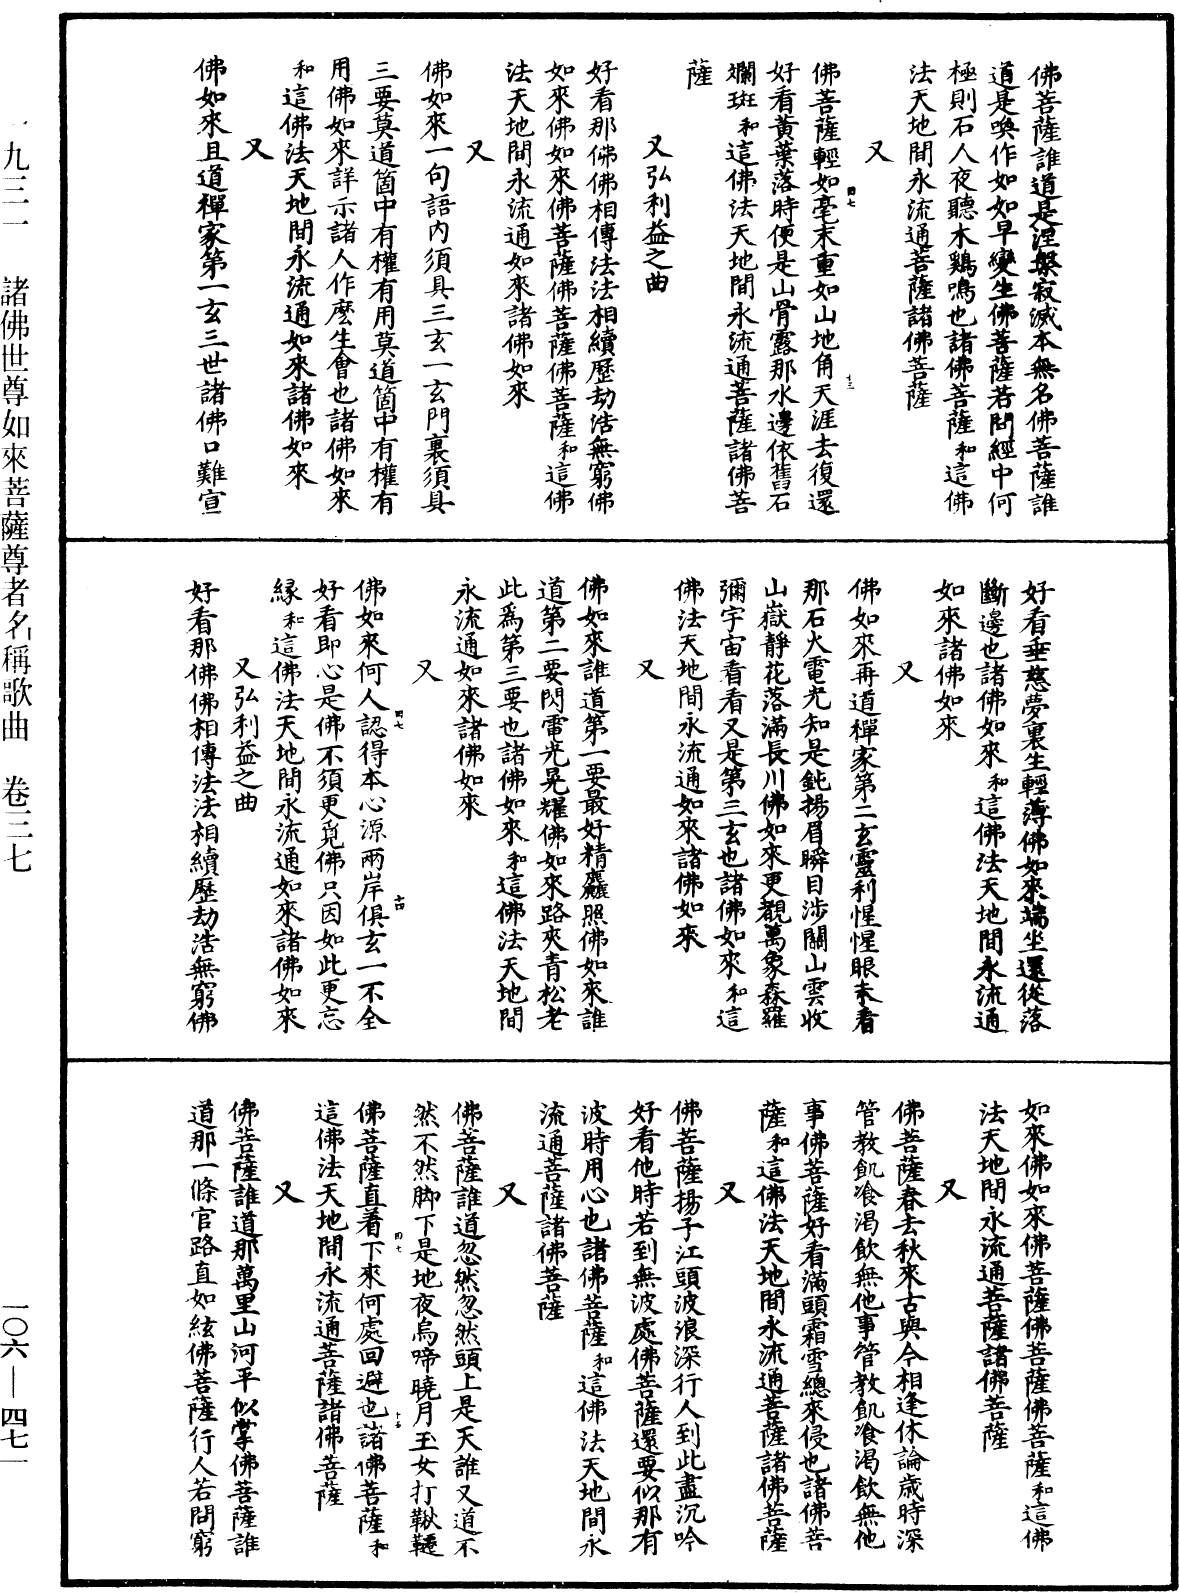 佛菩薩誰道是涅槃寂滅本無名佛菩薩誰
道是喚作如如早變生佛菩薩若問經中何
極則石人夜聽木鷄鳴也諸佛菩薩和這佛
法天地間永流通菩薩諸佛菩薩
又
佛菩薩輕如毫末重如山地角天涯去復還
好看黃葉落時便是山骨露那水邊依舊石
斕斑和這佛法天地間永流通菩薩諸佛菩
薩
又弘利益之曲
好看那佛佛相傳法法相續歷劫浩無窮佛
如來佛如來佛菩薩佛菩薩佛菩薩和這佛
法天地間永流通如來諸佛如來
又
佛如來一句語內須具三玄一玄門裏須具
三要莫道箇中有權有用莫道箇中有權有
用佛如來詳示諸人作麽生會也諸佛如來
和這佛法天地間永流通如來諸佛如來
又
佛如來且道禪家第一玄三世諸佛口難宣
好看垂慈夢裏生輕薄佛如來端坐還從落
斷邊也諸佛如來和這佛法天地間永流通
如來諸佛如來
又
佛如來再道禪家第二玄靈利惺惺眼未看
那石火電光知是鈍揚眉瞬目涉關山雲收
山嶽靜花落滿長川佛如來更觀萬象森羅
彌宇宙看看又是第三玄也諸佛如來和這
佛法天地間永流通如來諸佛如來
又
佛如來誰道第一要最好精麤照佛如來誰
道第二要閃電光晃耀佛如來路夾青松老
此爲第三要也諸佛如來和這佛法天地間
永流通如來諸佛如來
又
佛如來何人認得本心源兩岸俱玄一不全
好看即心是佛不須更覓佛只因如此更忘
緣和這佛法天地間永流通如來諸佛如來
又弘利益之曲
好看那佛佛相傳法法相續歷劫浩無窮佛
如來佛如來佛菩薩佛菩薩佛菩薩和這佛
法天地間永流通菩薩諸佛菩薩
又
佛菩薩春去秋來古與今相逢休論歲時深
管教飢飡渴飲無他事管教飢飡渴飲無他
事佛菩薩好看滿頭霜雪總來侵也諸佛菩
薩和這佛法天地間永流通菩薩諸佛菩薩
又
佛菩薩揚子江頭波浪深行人到此盡沉吟
好看他時若到無波處佛菩薩還要似那有
波時用心也諸佛菩薩和這佛法天地間永
流通菩薩諸佛菩薩
又
佛菩薩誰道忽然忽然頭上是天誰又道不
然不然脚下是地夜烏啼曉月玉女打鞦韆
佛菩薩直着下來何處回避也諸佛菩薩和
這佛法天地間永流通菩薩諸佛菩薩
又
佛菩薩誰道那萬里山河平似掌佛菩薩誰
道那一條官路直如絃佛菩薩行人若問窮
一九三一 諸佛世尊如來菩薩尊者名稱歌曲 卷三七
一〇六—四七一